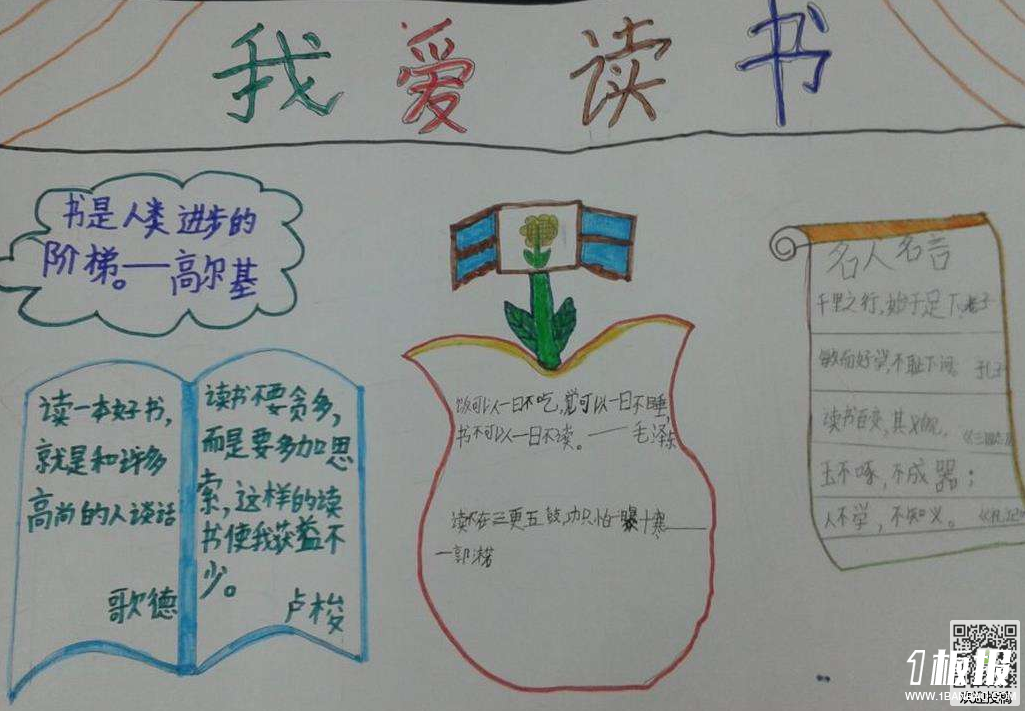 我爱读书
书是人类进步的
阶梯。——高尔基
读一本好书,
就是和许多
高尚的人谈话
歌德
读书不要贪多,
而是要多加思
索,这样的读
书使我获益不
少。
卢梭
饭可以一日不吃,觉可以一日不睡,
书不可以一日不读。——毛泽东
读不在三更五鼓,功只怕一曝十寒——
郭沫若
名人名言
千里之行,始于足下.老子
敏而好学,不耻下问. 孔子
读书百变,其义
玉不啄,不成器;
人不学,不知义。
1板报
WWW.1BANBAO.COM
欢迎投稿